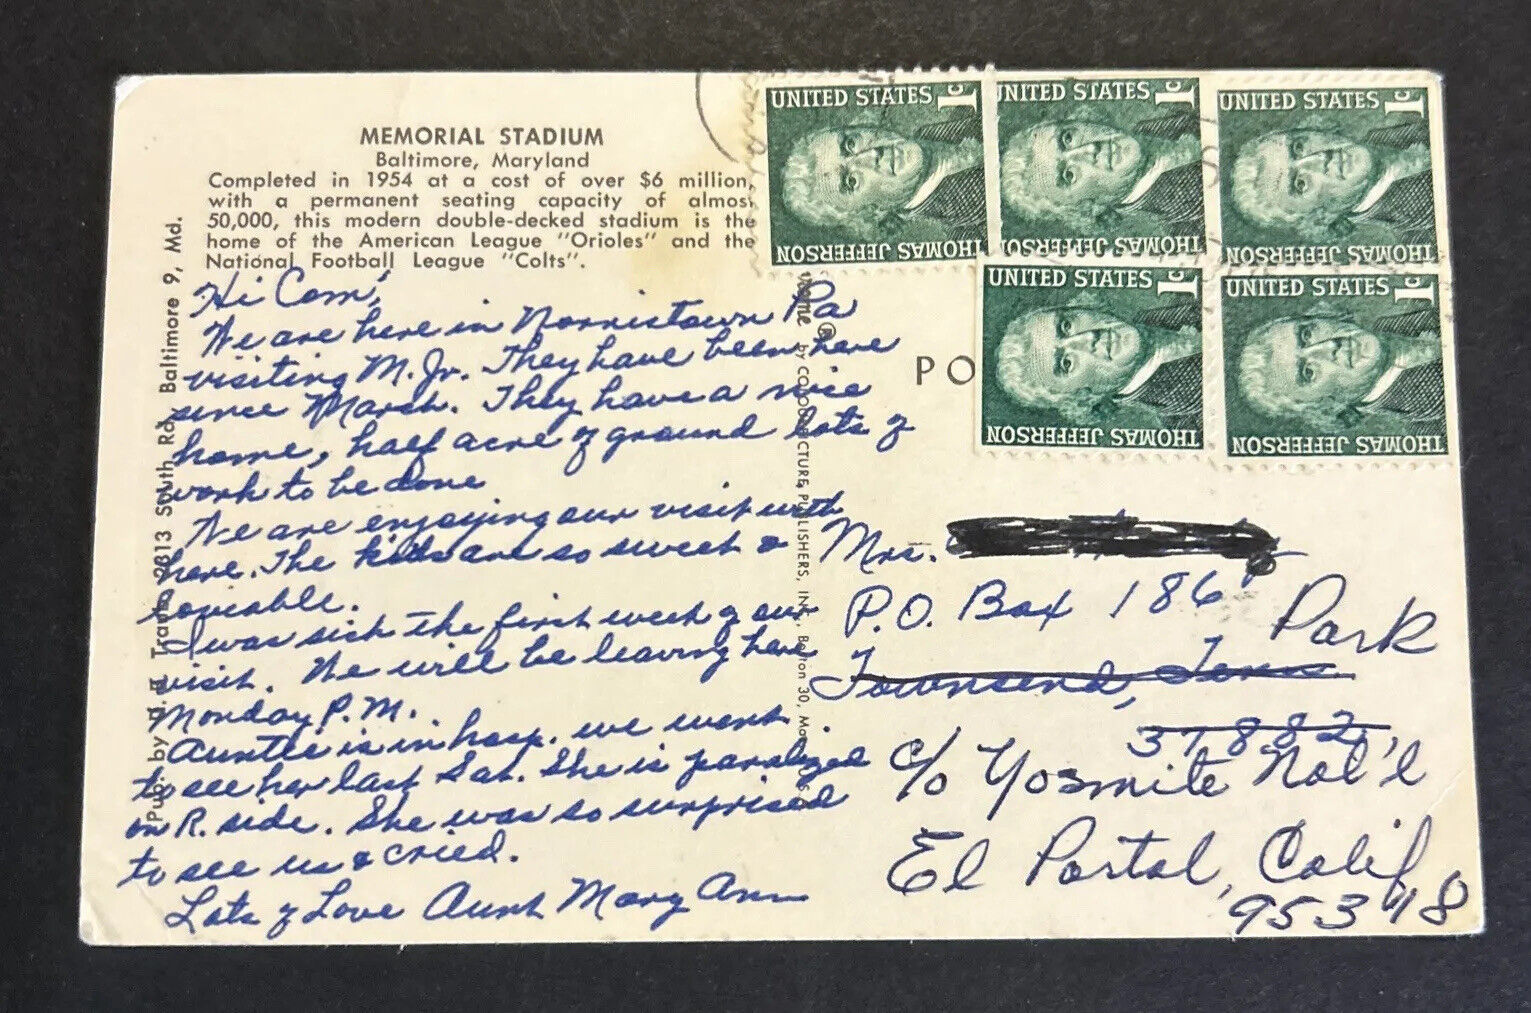 MEMORIAL STADIUM
Baltimore, Maryland
Completed in 1954 at a cost of over $6 million,
with a permanent seating capacity of almost
50,000, this modern double-decked stadium is the
home of the American League "Orioles" and the
National Football League "Colts".
Hi Cam,
We are here in Norristown Pa
visiting M. Jr. They have been here
since March. They have a nice
home, half acre of ground lots of
work to be done
We are enjoying our visit with
here. The kids are so sweet &
loveable.
I was sick the first week of our
visit. We will be leaving here
Monday P.M.
Auntie is in hosp. we went
to see her last Sat. She is paralized
on R. side. She was so surprised
to see us & cried.
Lots of Love Aunt Mary Ann
Pub. by Traub 2813 South Rd. Baltimore 9, Md.
by COLOURPICTURE PUBLISHERS, INC., Boston 30, Mass.
®
PO
UNITED STATES 1c
THOMAS JEFFERSON
UNITED STATES 1c
THOMAS JEFFERSON
UNITED STATES 1c
THOMAS JEFFERSON
UNITED STATES 1c
THOMAS JEFFERSON
UNITED STATES 1c
THOMAS JEFFERSON
Mrs.
P.O. Box 186
Townsend, Tenn
37882,
c/o Yosmite Nat'l Park
El Portal, Calif
95318